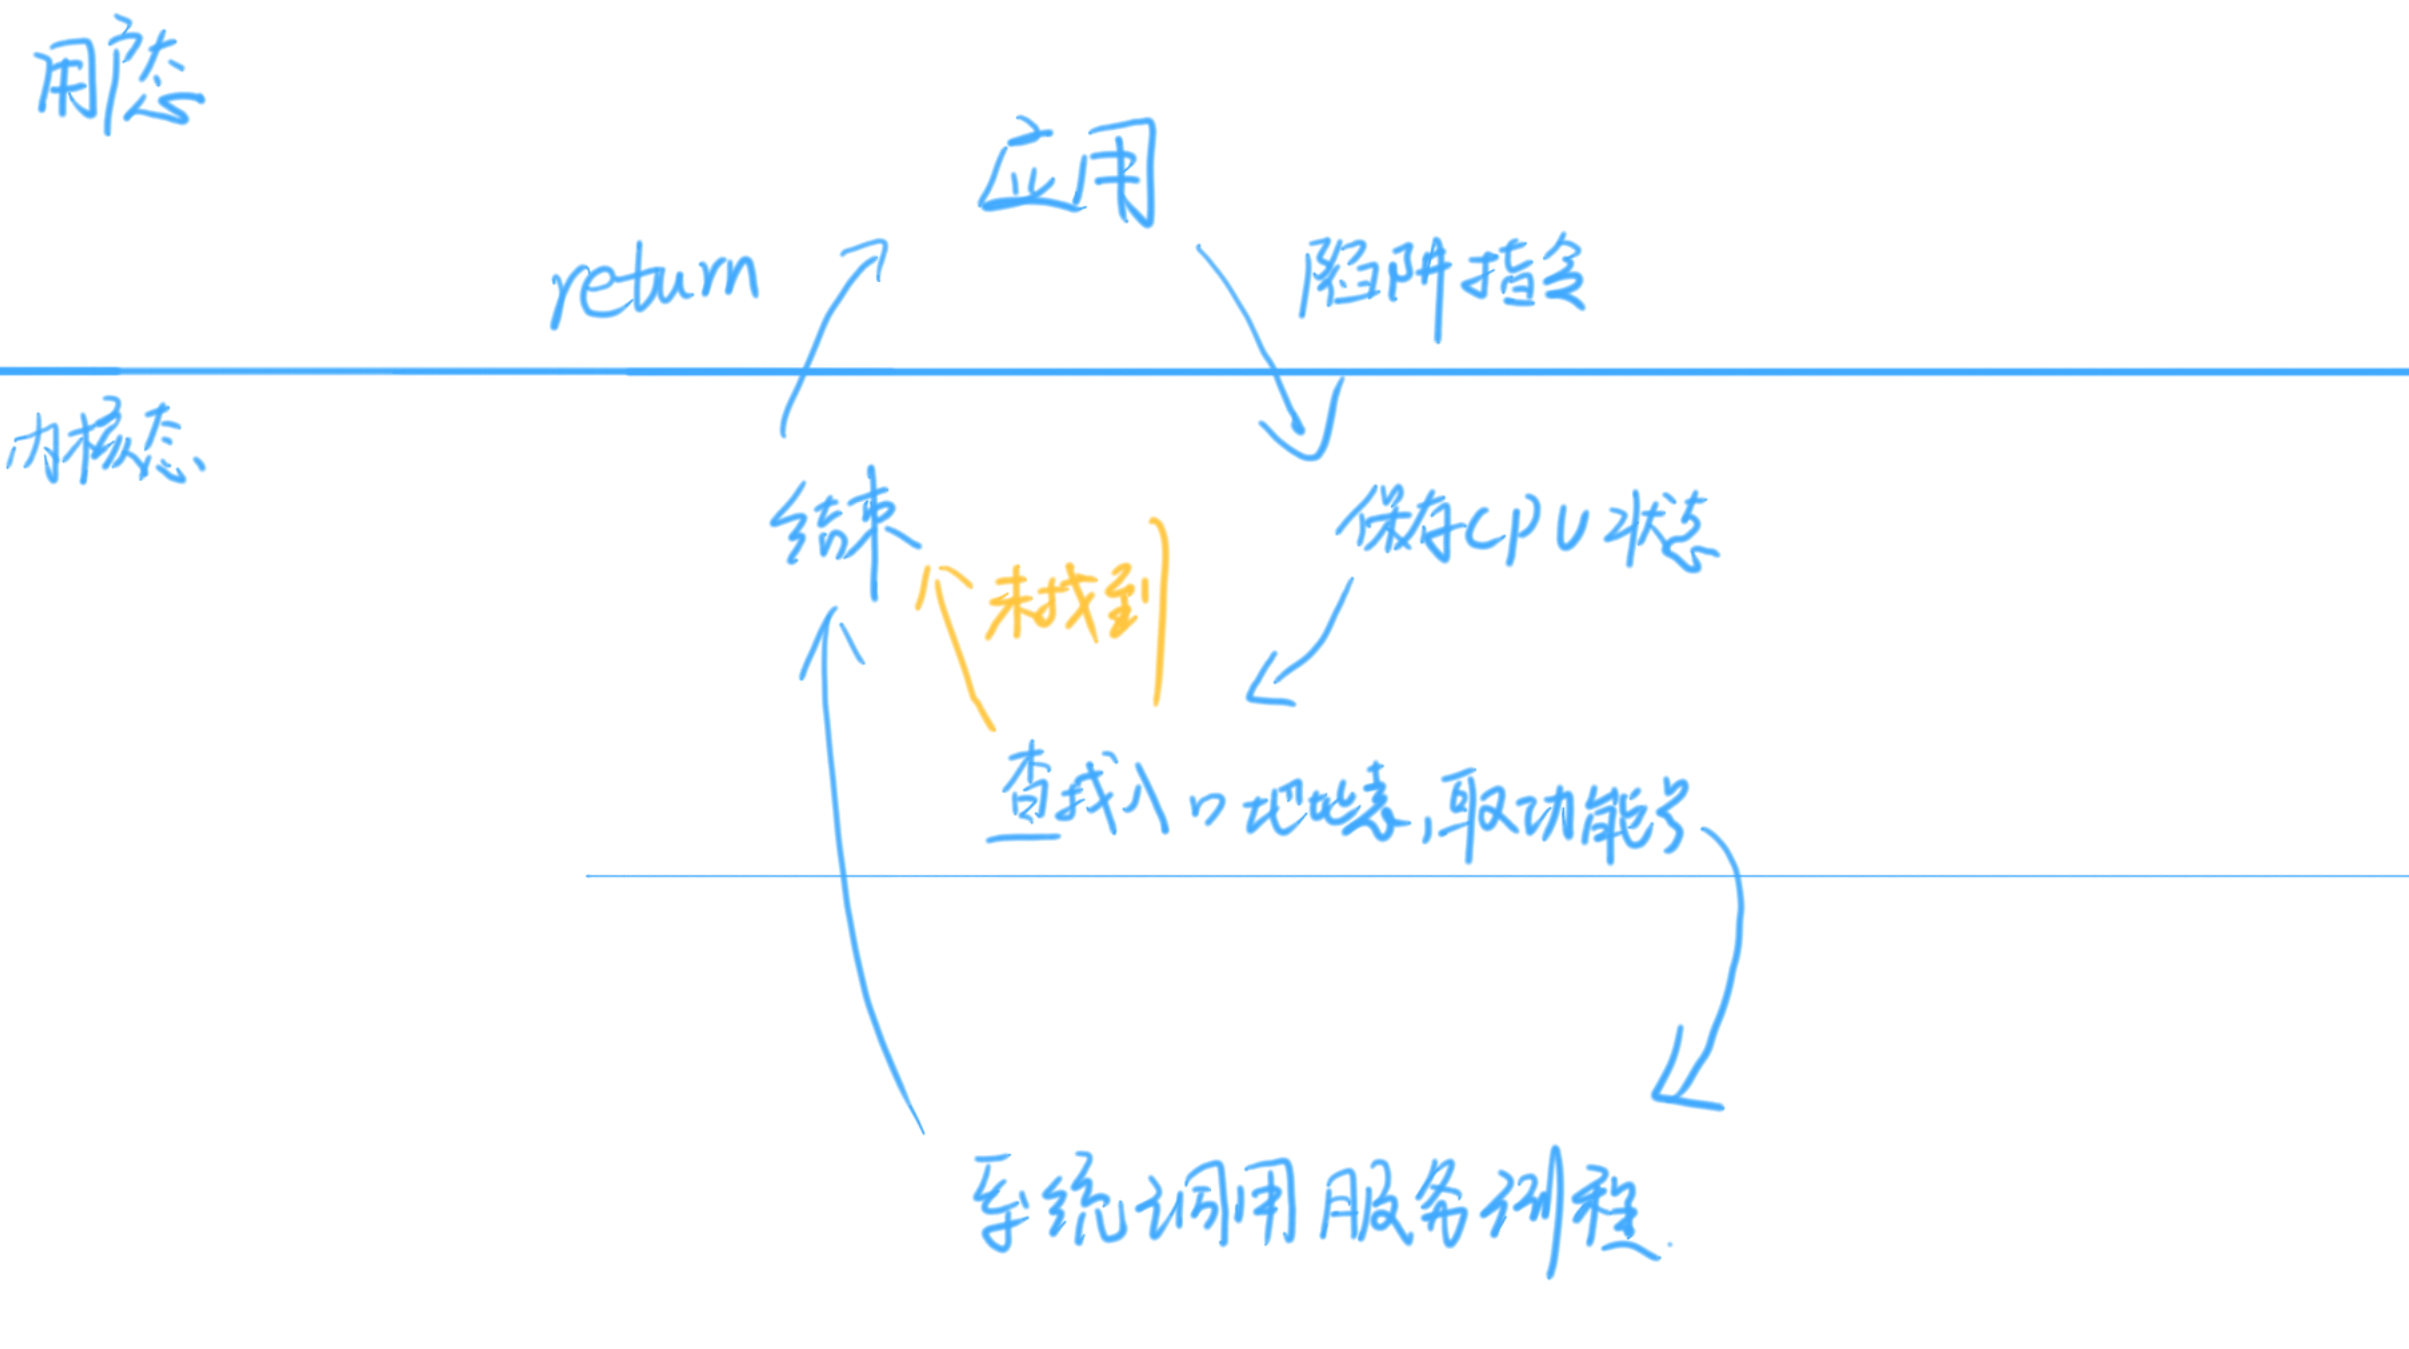 用户态
应用
return
陷阱指令
内核态
结束
保存CPU状态
未找到
查找入口地址表,取功能号
系统调用服务例程.